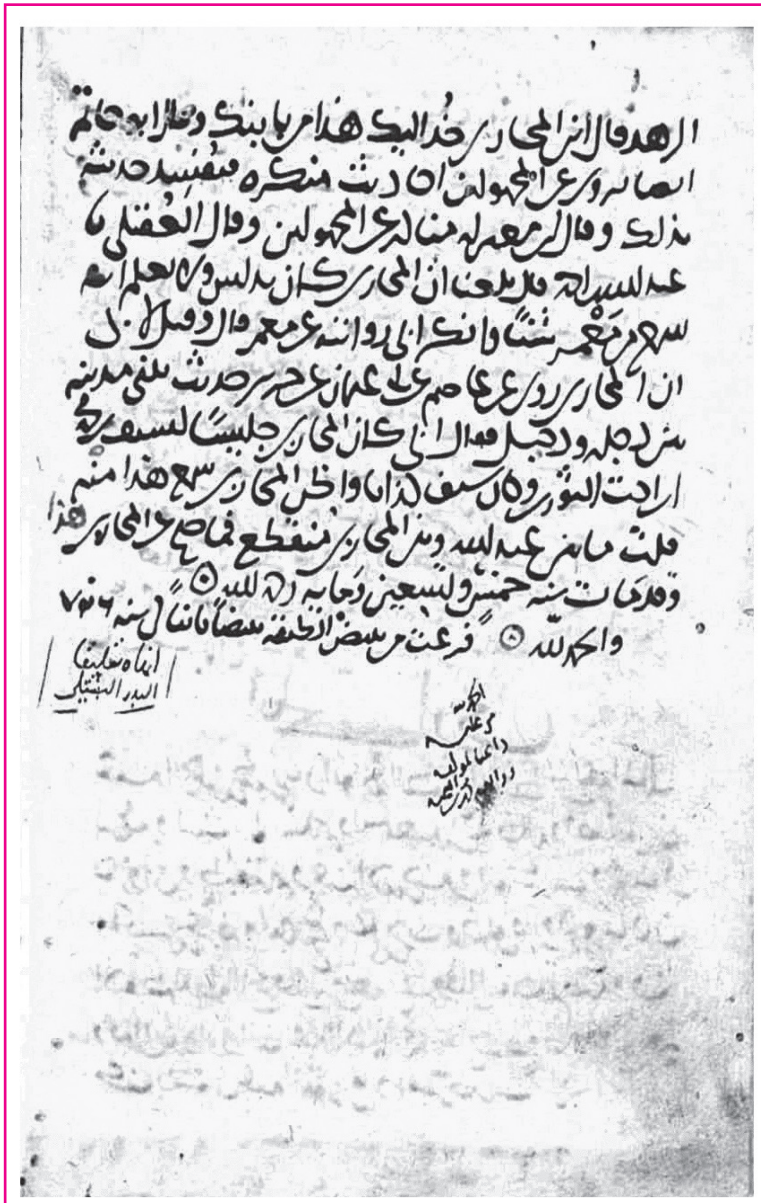 الزهد فقال ابن المحاربي خذ اليك هذا من بابتك وقال ابو حاتم
ايضا يروي عن المجهولين احاديث منكرة فيفسد حديثه
بذلك وقال ابن معين له مناكير عن المجهولين وقال العقيلي نا
عبد الله بن احمد قال بلغنا ان المحاربي كان يدلس ولا نعلم انه
سمع من معمر شيئا وانكر ابي روايته عن معمر قال وقيل لابي
ان المحاربي روى عن عاصم عن ابي عثمان عن جرير حديث تبنى مدينة
بين دجلة ودجيل فقال ابي كان المحاربي جليسا لسيف بن
اخت الثوري وكان سيف كذابا واظن المحاربي سمع هذا منه
قلت ما بين عبد الله وبين المحاربي منقطع فما صح عن المحاربي هذا
وقد مات سنة خمس وتسعين ومايه رحمه الله
والحمد لله فرغت من بيضا سنة
انهاه تعليقا
البدر البشتكي
الحمد لله
داعيا لمؤلفه